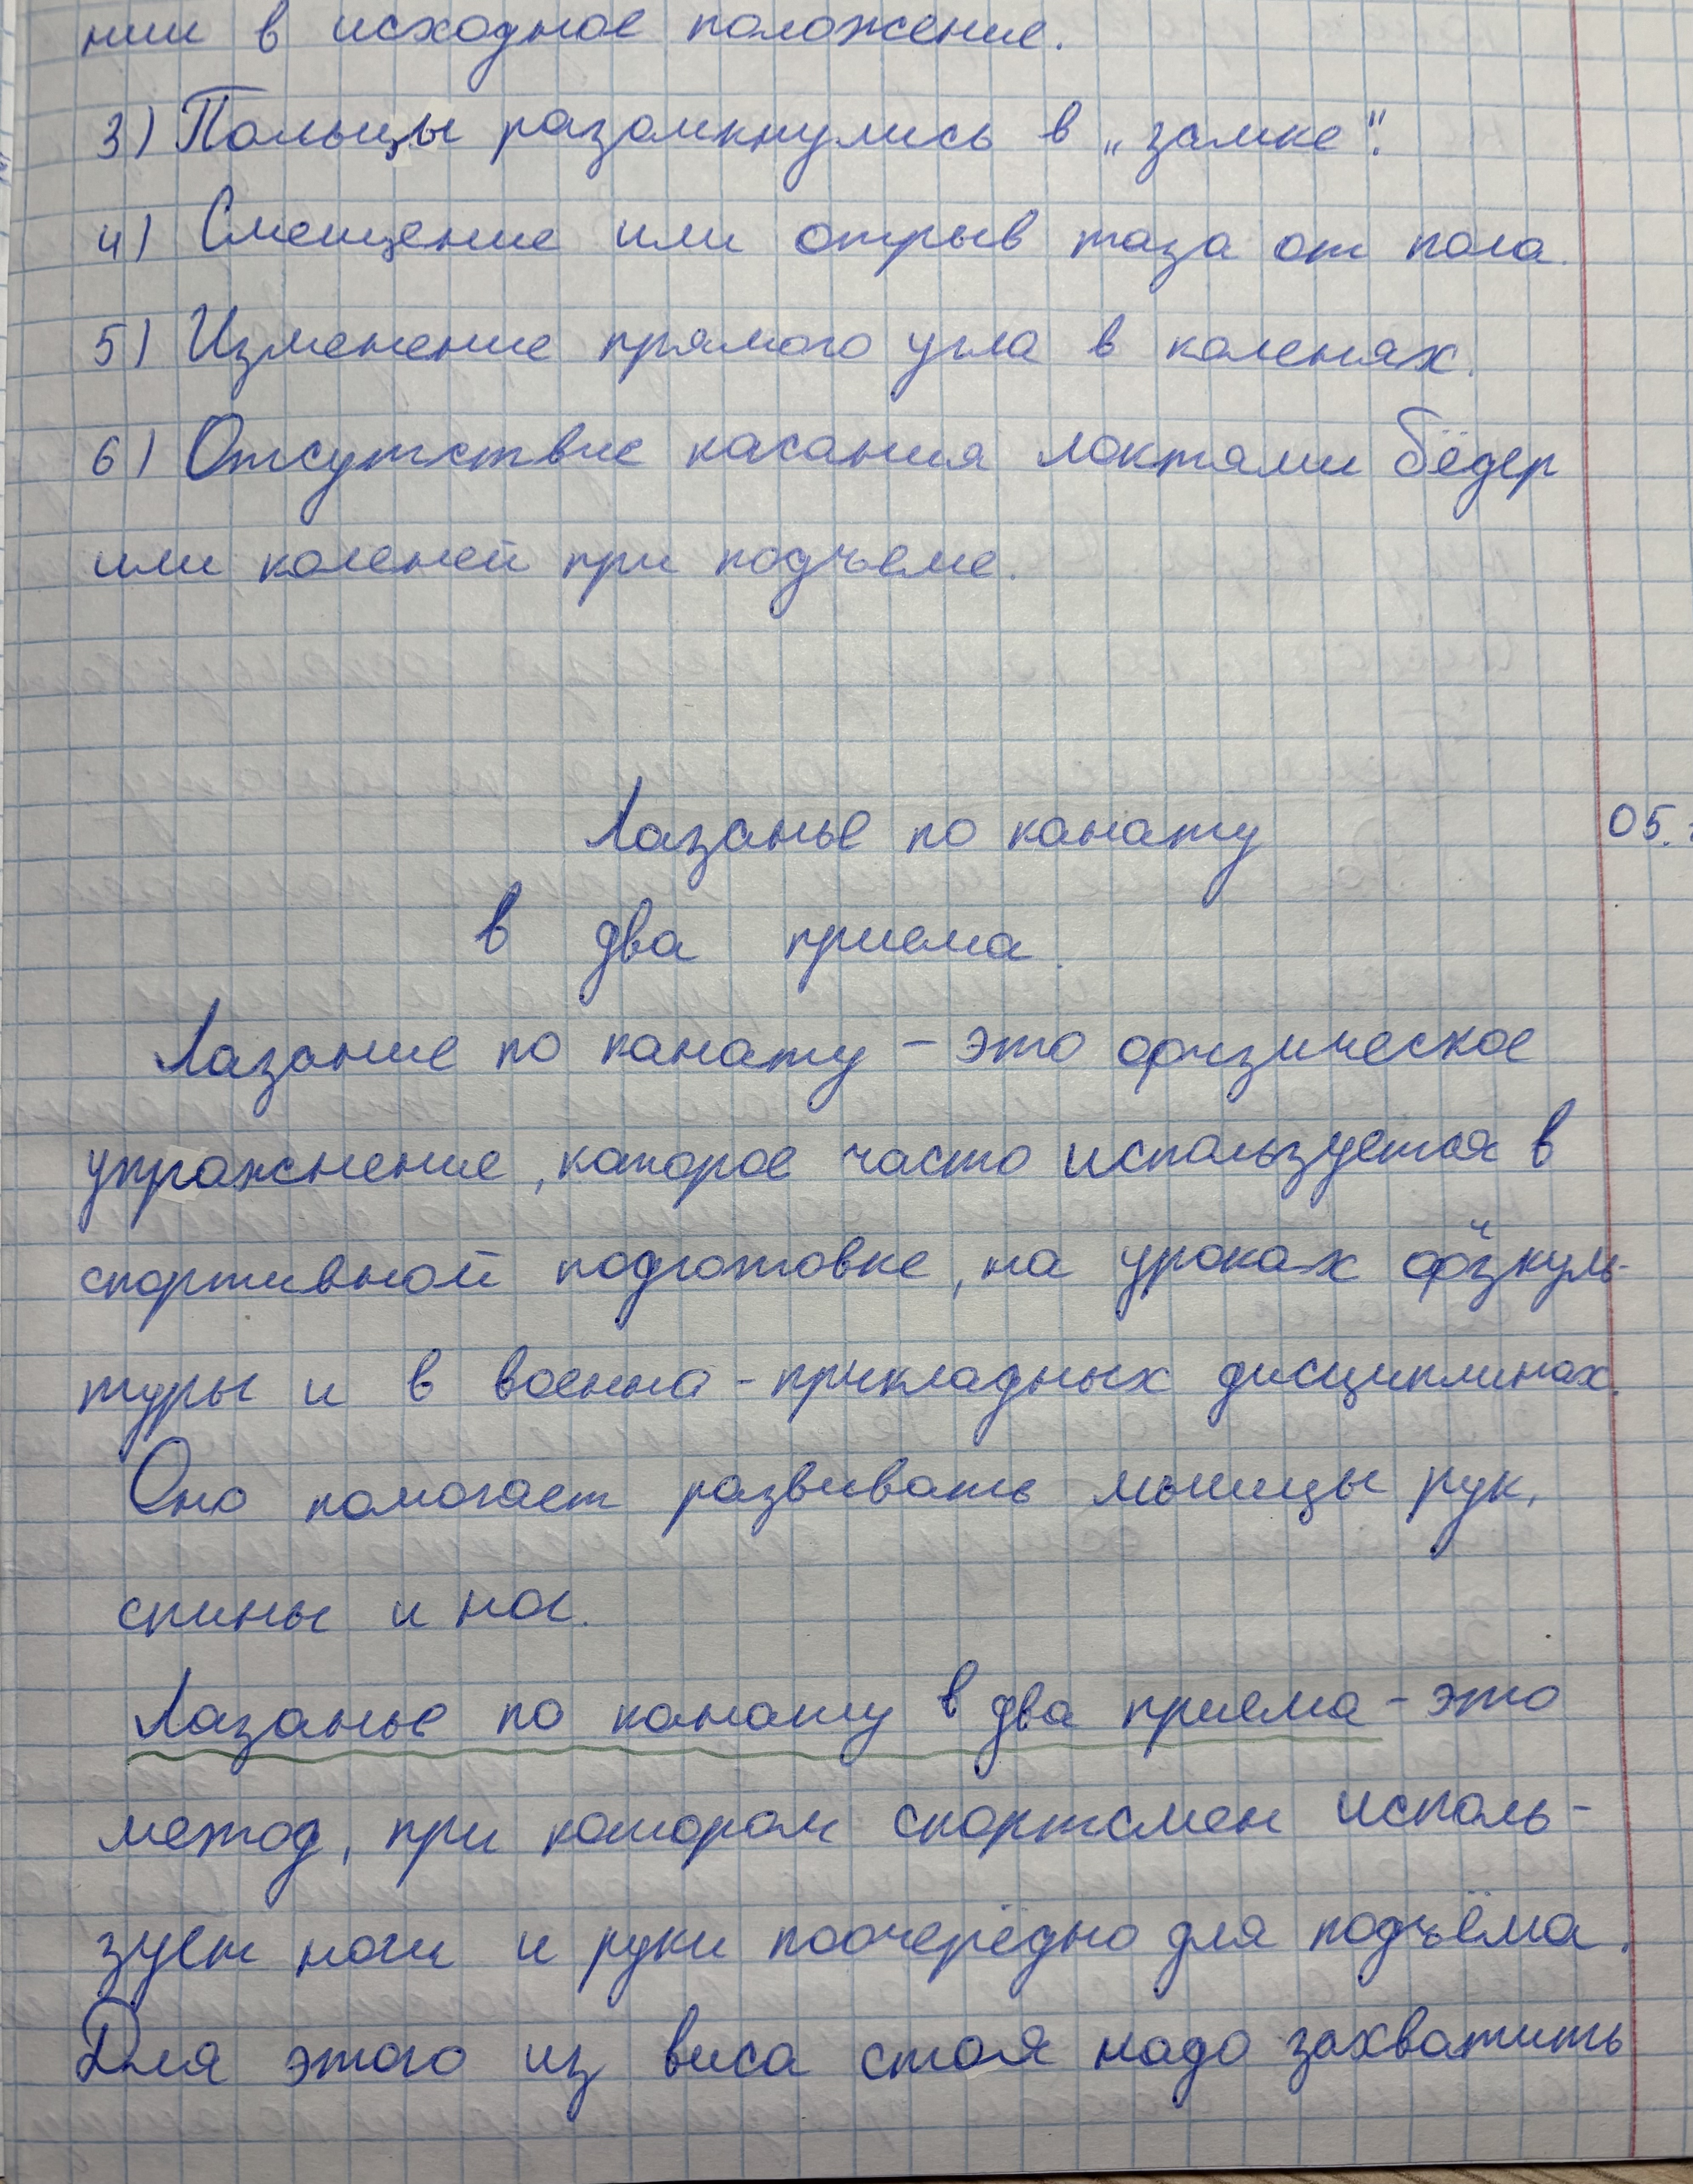 нии в исходное положение.
3) Пальцы разомкнулись в „замке".
4) Смещение или отрыв таза от пола.
5) Изменение прямого угла в коленях.
6) Отсутствие касания локтями бёдер
или коленей при подъеме.
Лазанье по канату
05.
в два приема.
Лазание по канату – это физическое
упражнение, которое часто используется в
спортивной подготовке, на уроках физкуль-
туры и в военно-прикладных дисциплинах.
Оно помогает развивать мышцы рук,
спины и ног.
Лазанье по канату в два приема – это
метод, при котором спортсмен исполь-
зует ноги и руки поочерёдно для подъёма.
Для этого из виса стоя надо захватить